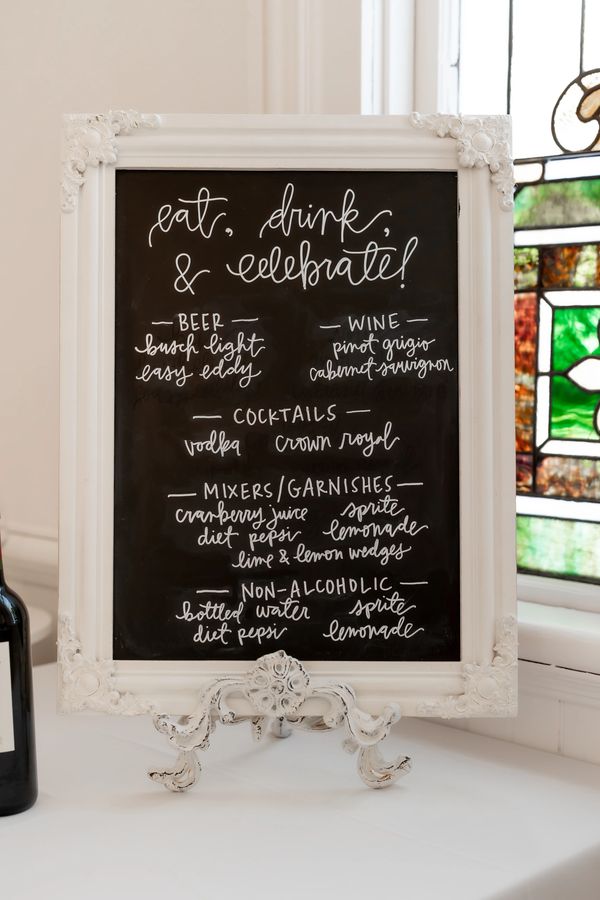 eat, drink,
& celebrate!
— BEER —
busch light
easy eddy
— WINE —
pinot grigio
cabernet sauvignon
— COCKTAILS —
vodka crown royal
— MIXERS/GARNISHES —
cranberry juice sprite
diet pepsi lemonade
lime & lemon wedges
— NON-ALCOHOLIC —
bottled water sprite
diet pepsi lemonade